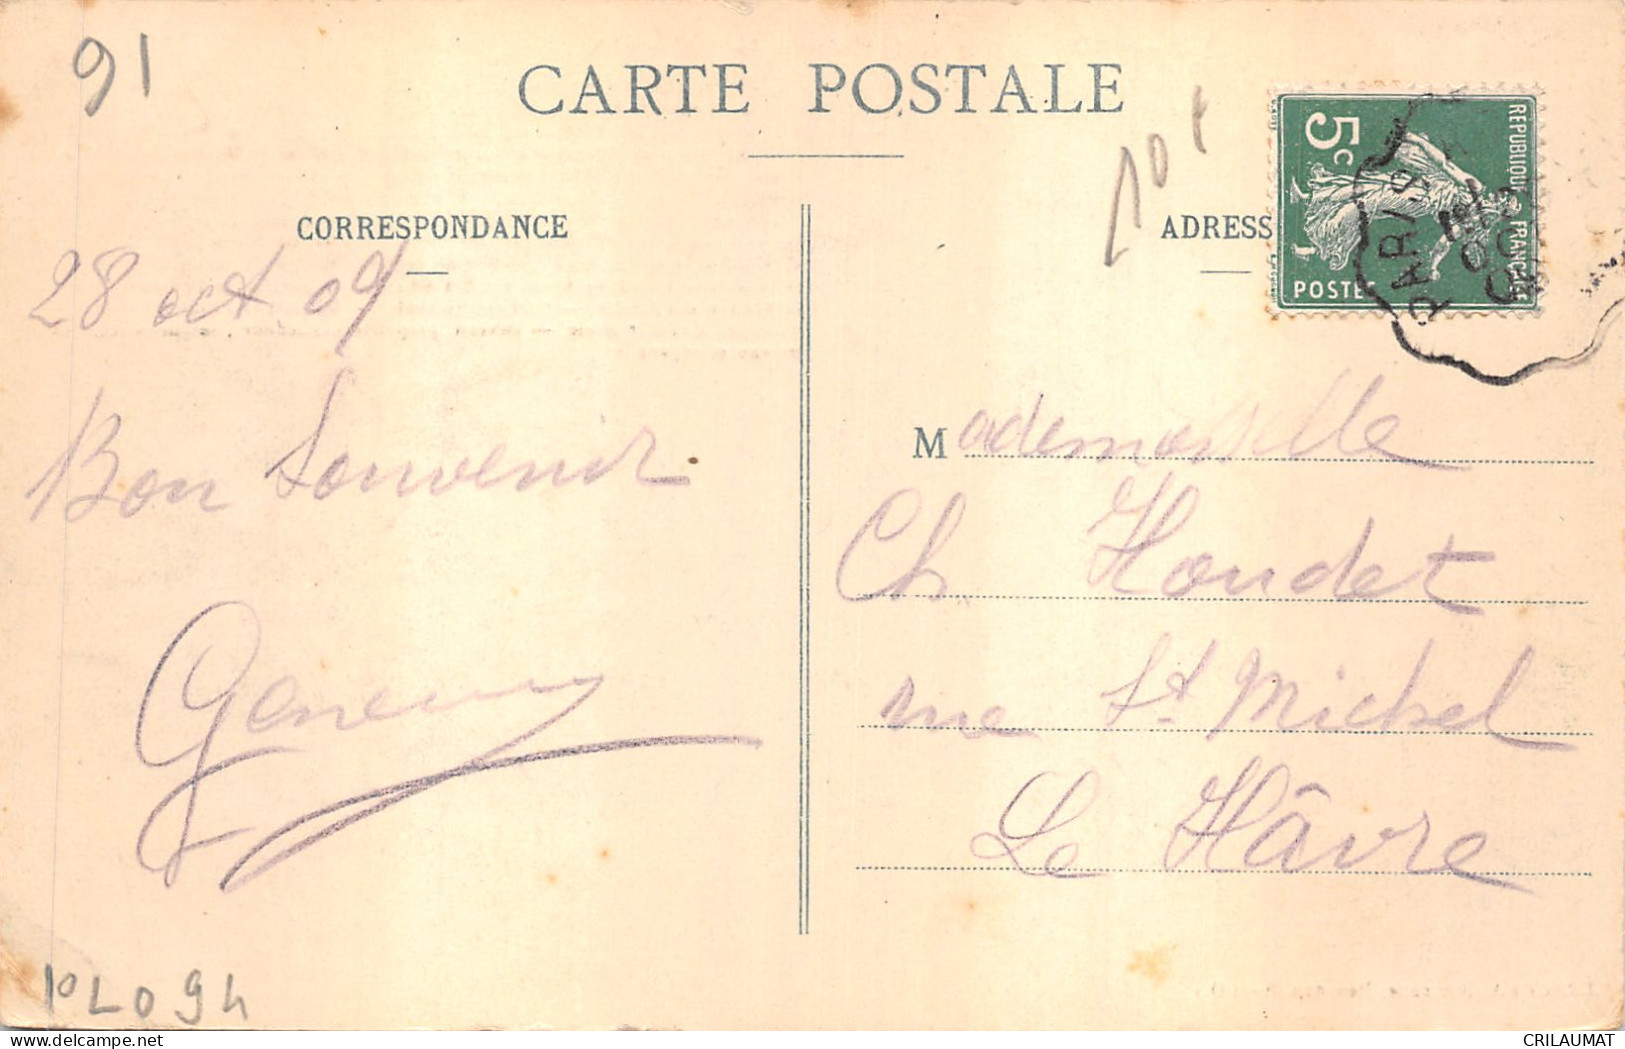 91
CARTE POSTALE
10 t
CORRESPONDANCE
ADRESS
REPUBLIQUE FRANÇAISE
5c
POSTE
PARIS
28 oct 09
Bon Souvenir.
Mademoiselle
Ch Houdet
rue St Michel
Le Hâvre
10L094
delcampe.net
CRILAUMAT